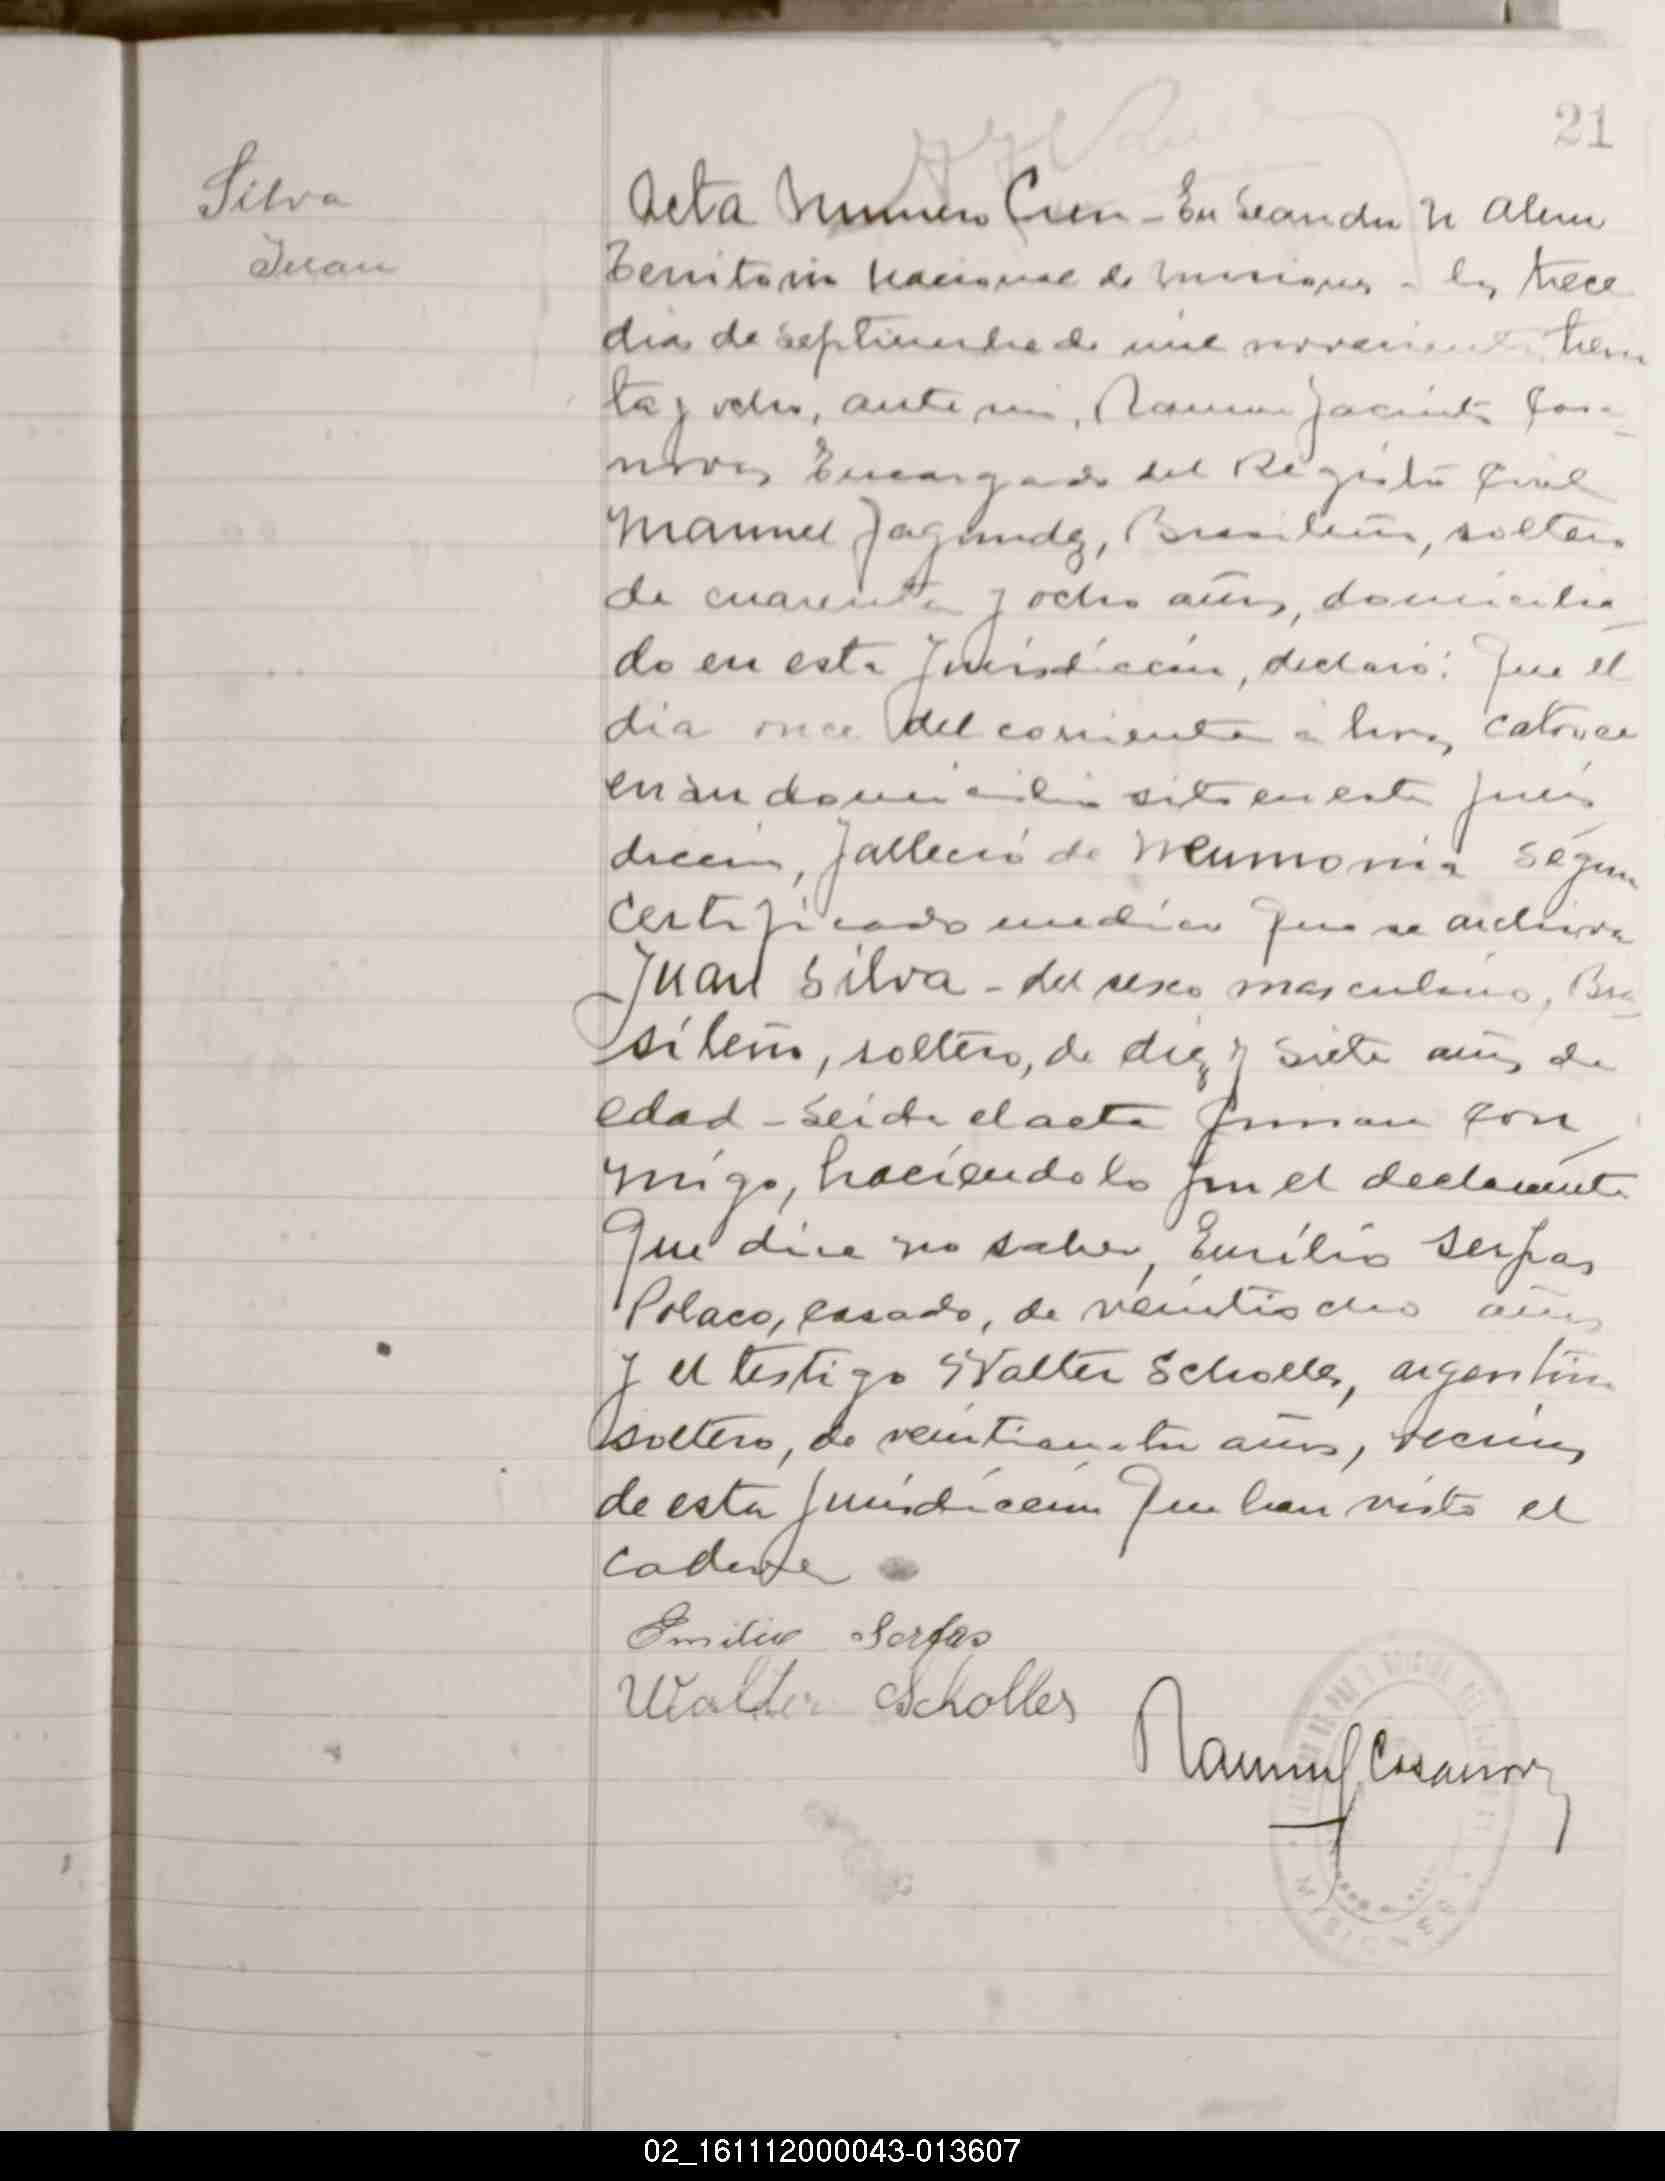 21
Silva
Juan
Acta Numero Cien - En Leandro N Alem
Territorio Nacional de Misiones a los trece
dias de Septiembre de mil novecientos trein
ta y ocho, ante mi, Ramon Jacinto Casa-
nova, Encargado del Registro Civil
Manuel Fagundez, Brasileño, soltero
de cuarenta y ocho años, domicilia-
do en esta Jurisdiccion, declaró: Que el
dia once del corriente a horas catorce
en su domicilio sito en esta Juris
diccion, falleció de Neumonia Segun
Certificado medico que se archiva
Juan Silva - del sexo masculino, Bra-
sileño, soltero, de diez y siete años de
edad - Leida el acta firman con
migo, haciendolo por el declarante
Que dice no saber, Emilio Serfas
Polaco, casado, de veintiocho años
y el testigo Walter Scholles, argentino
soltero, de veinticuatro años, vecinos
de esta Jurisdiccion que han visto el
cadaver
Emilio Serfas
Walter Scholles
Ramon J Casanova
MISIONES
02_161112000043-013607